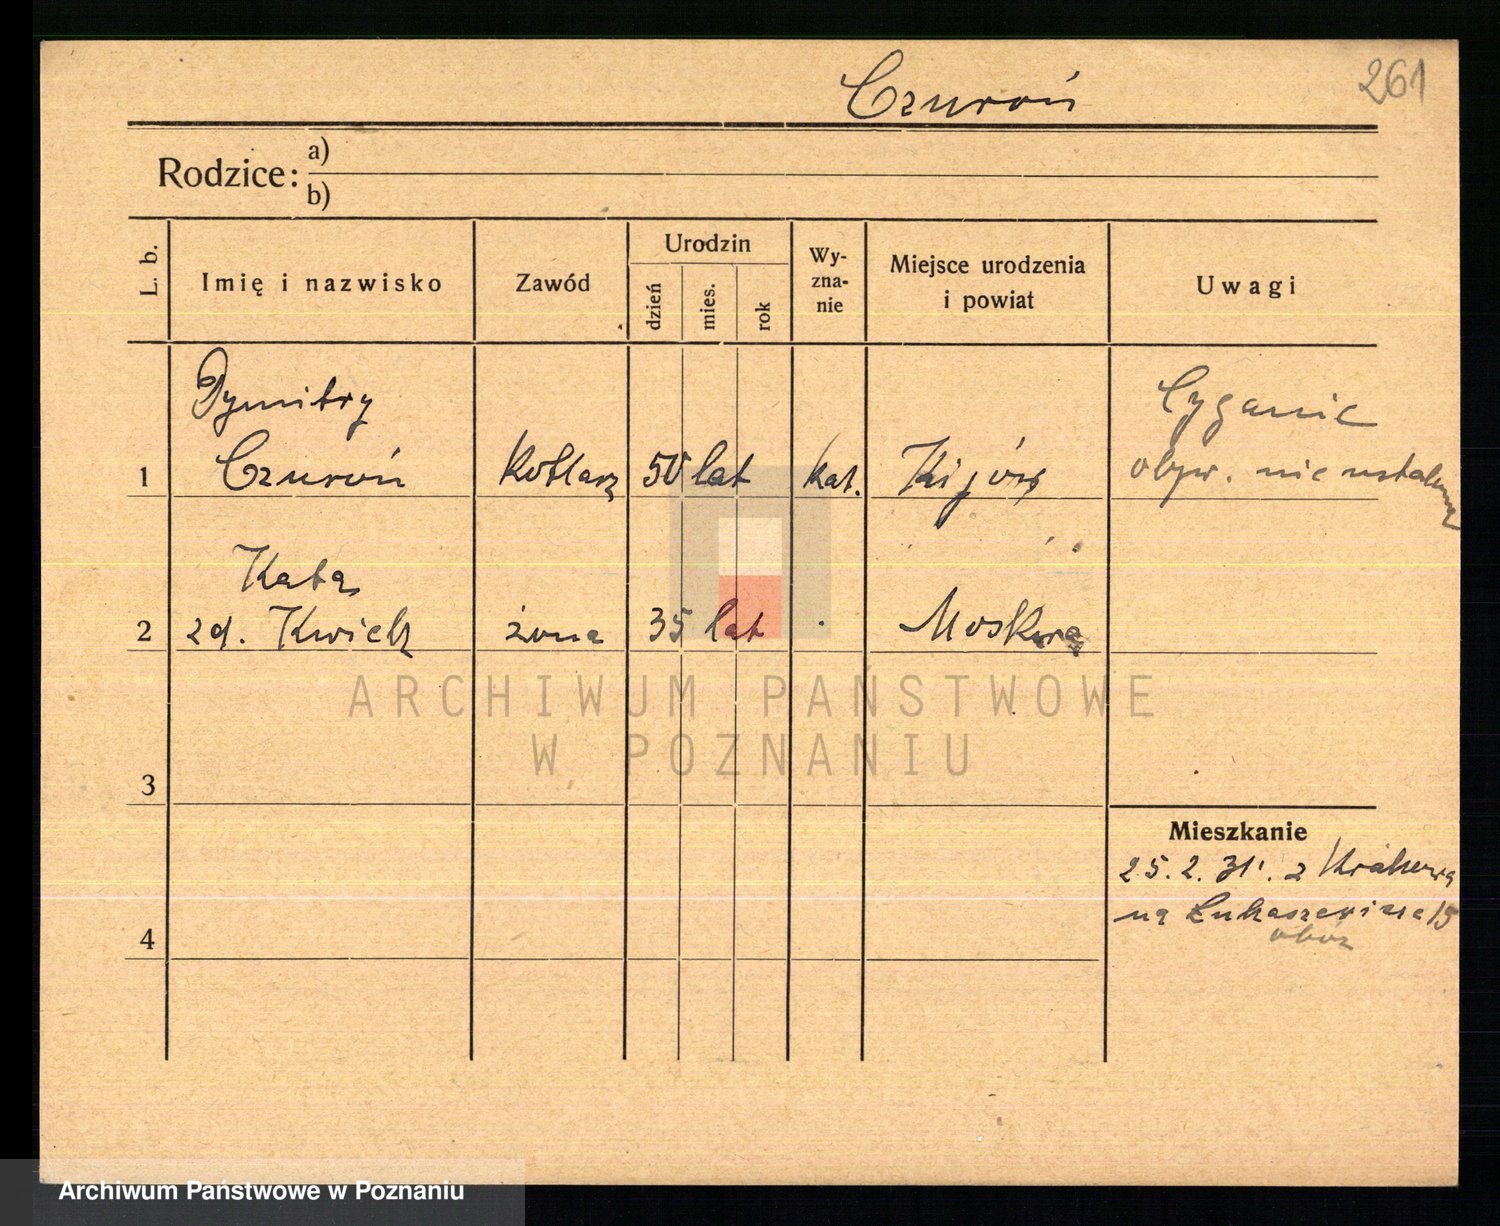 261
Czuroń
Rodzice: a)
b)
L. b.
Imię i nazwisko
Zawód
Urodzin
dzień
mies.
rok
Wy-
zna-
nie
Miejsce urodzenia
i powiat
Uwagi
1
Dymitry
Czuroń
Kotlarz
50 lat
kat.
Kijów
Cyganie
obyw. nie ustalone
2
Kata
zd. Kwiek
żona
35 lat
Moskwa
ARCHIWUM PAŃSTWOWE
W POZNANIU
3
4
Mieszkanie
25.2.31. z Krakowa
na Łukaszewicza 15
obóz
Archiwum Państwowe w Poznaniu